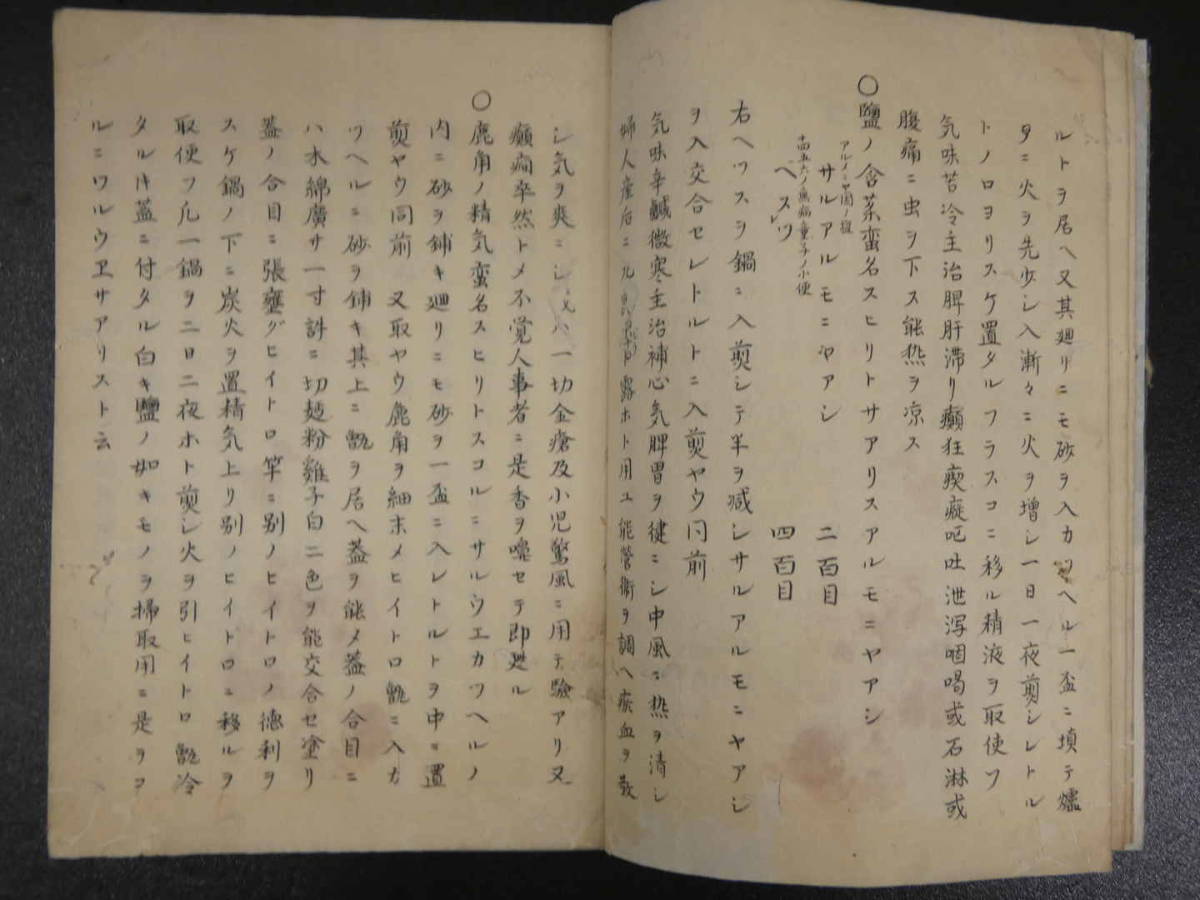 ルトヲ居ヘ又其廻リニモ砂ヲ入カツヘル一盃ニ塡テ爐
タニ火ヲ先少シ入漸々ニ火ヲ増シ一日一夜煎シレトル
トノロヨリスケ置タルフラスコニ移ル精液ヲ取使フ
気味苦冷主治脾肝滞リ癲狂瘈癡吃吐泄瀉咽喝或石淋或
腹痛ニ虫ヲ下ス能熱ヲ凉ス
〇鹽ノ含蒸蛮名スヒリトサアリスアルモニヤアシ
アルメニヤ國ノ鹽
サルアルモニヤアシ 二百目
十四五六ノ無病童子ノ小便
ヘスワ 四百目
右ヘワスヲ鍋ニ入煎シテ半ヲ减シサルアルモニヤアシ
ヲ入交合セレトルトニ入煎ヤウ同前
気味辛鹹微寒主治補心気脾胃ヲ健ニシ中風ニ熱ヲ清シ
婦人産后ニ九露ホト用ユ能営衛ヲ調ヘ瘀血ヲ散
シ気ヲ爽ニシ一切金瘡及小児驚風ニ用テ驗アリ又
癲癇卒然トメ不覚人事者ニ是香ヲ嗅セテ即廻ル
〇鹿角ノ精気蛮名スヒリトスコルニサルウエカツヘルノ
内ニ砂ヲ鋪キ廻リニモ砂ヲ一盃ニ入レトルトヲ中ニ置
煎ヤウ同前 又取ヤウ鹿角ヲ細末メヒイトロ甑ニ入カ
ツヘルニ砂ヲ鋪キ其上ニ甑ヲ居ヘ蓋ヲ能メ蓋ノ合目ニ
ハ木綿廣サ一寸計ニ切麺粉雞子白二色ヲ能交合セ塗リ
蓋ノ合目ニ張塞グヒイトロ竿ニ別ノヒイトロノ徳利ヲ
スケ鍋ノ下ニ炭火ヲ置精気上リ別ノヒイトロニ移ルヲ
取使フ凢一鍋ヲ二日二夜ホト煎シ火ヲ引ヒイトロ甑冷
タル時蓋ニ付タル白キ鹽ノ如キモノヲ掃取用ニ是ヲヲ
ルニワルウヱサアリスト云